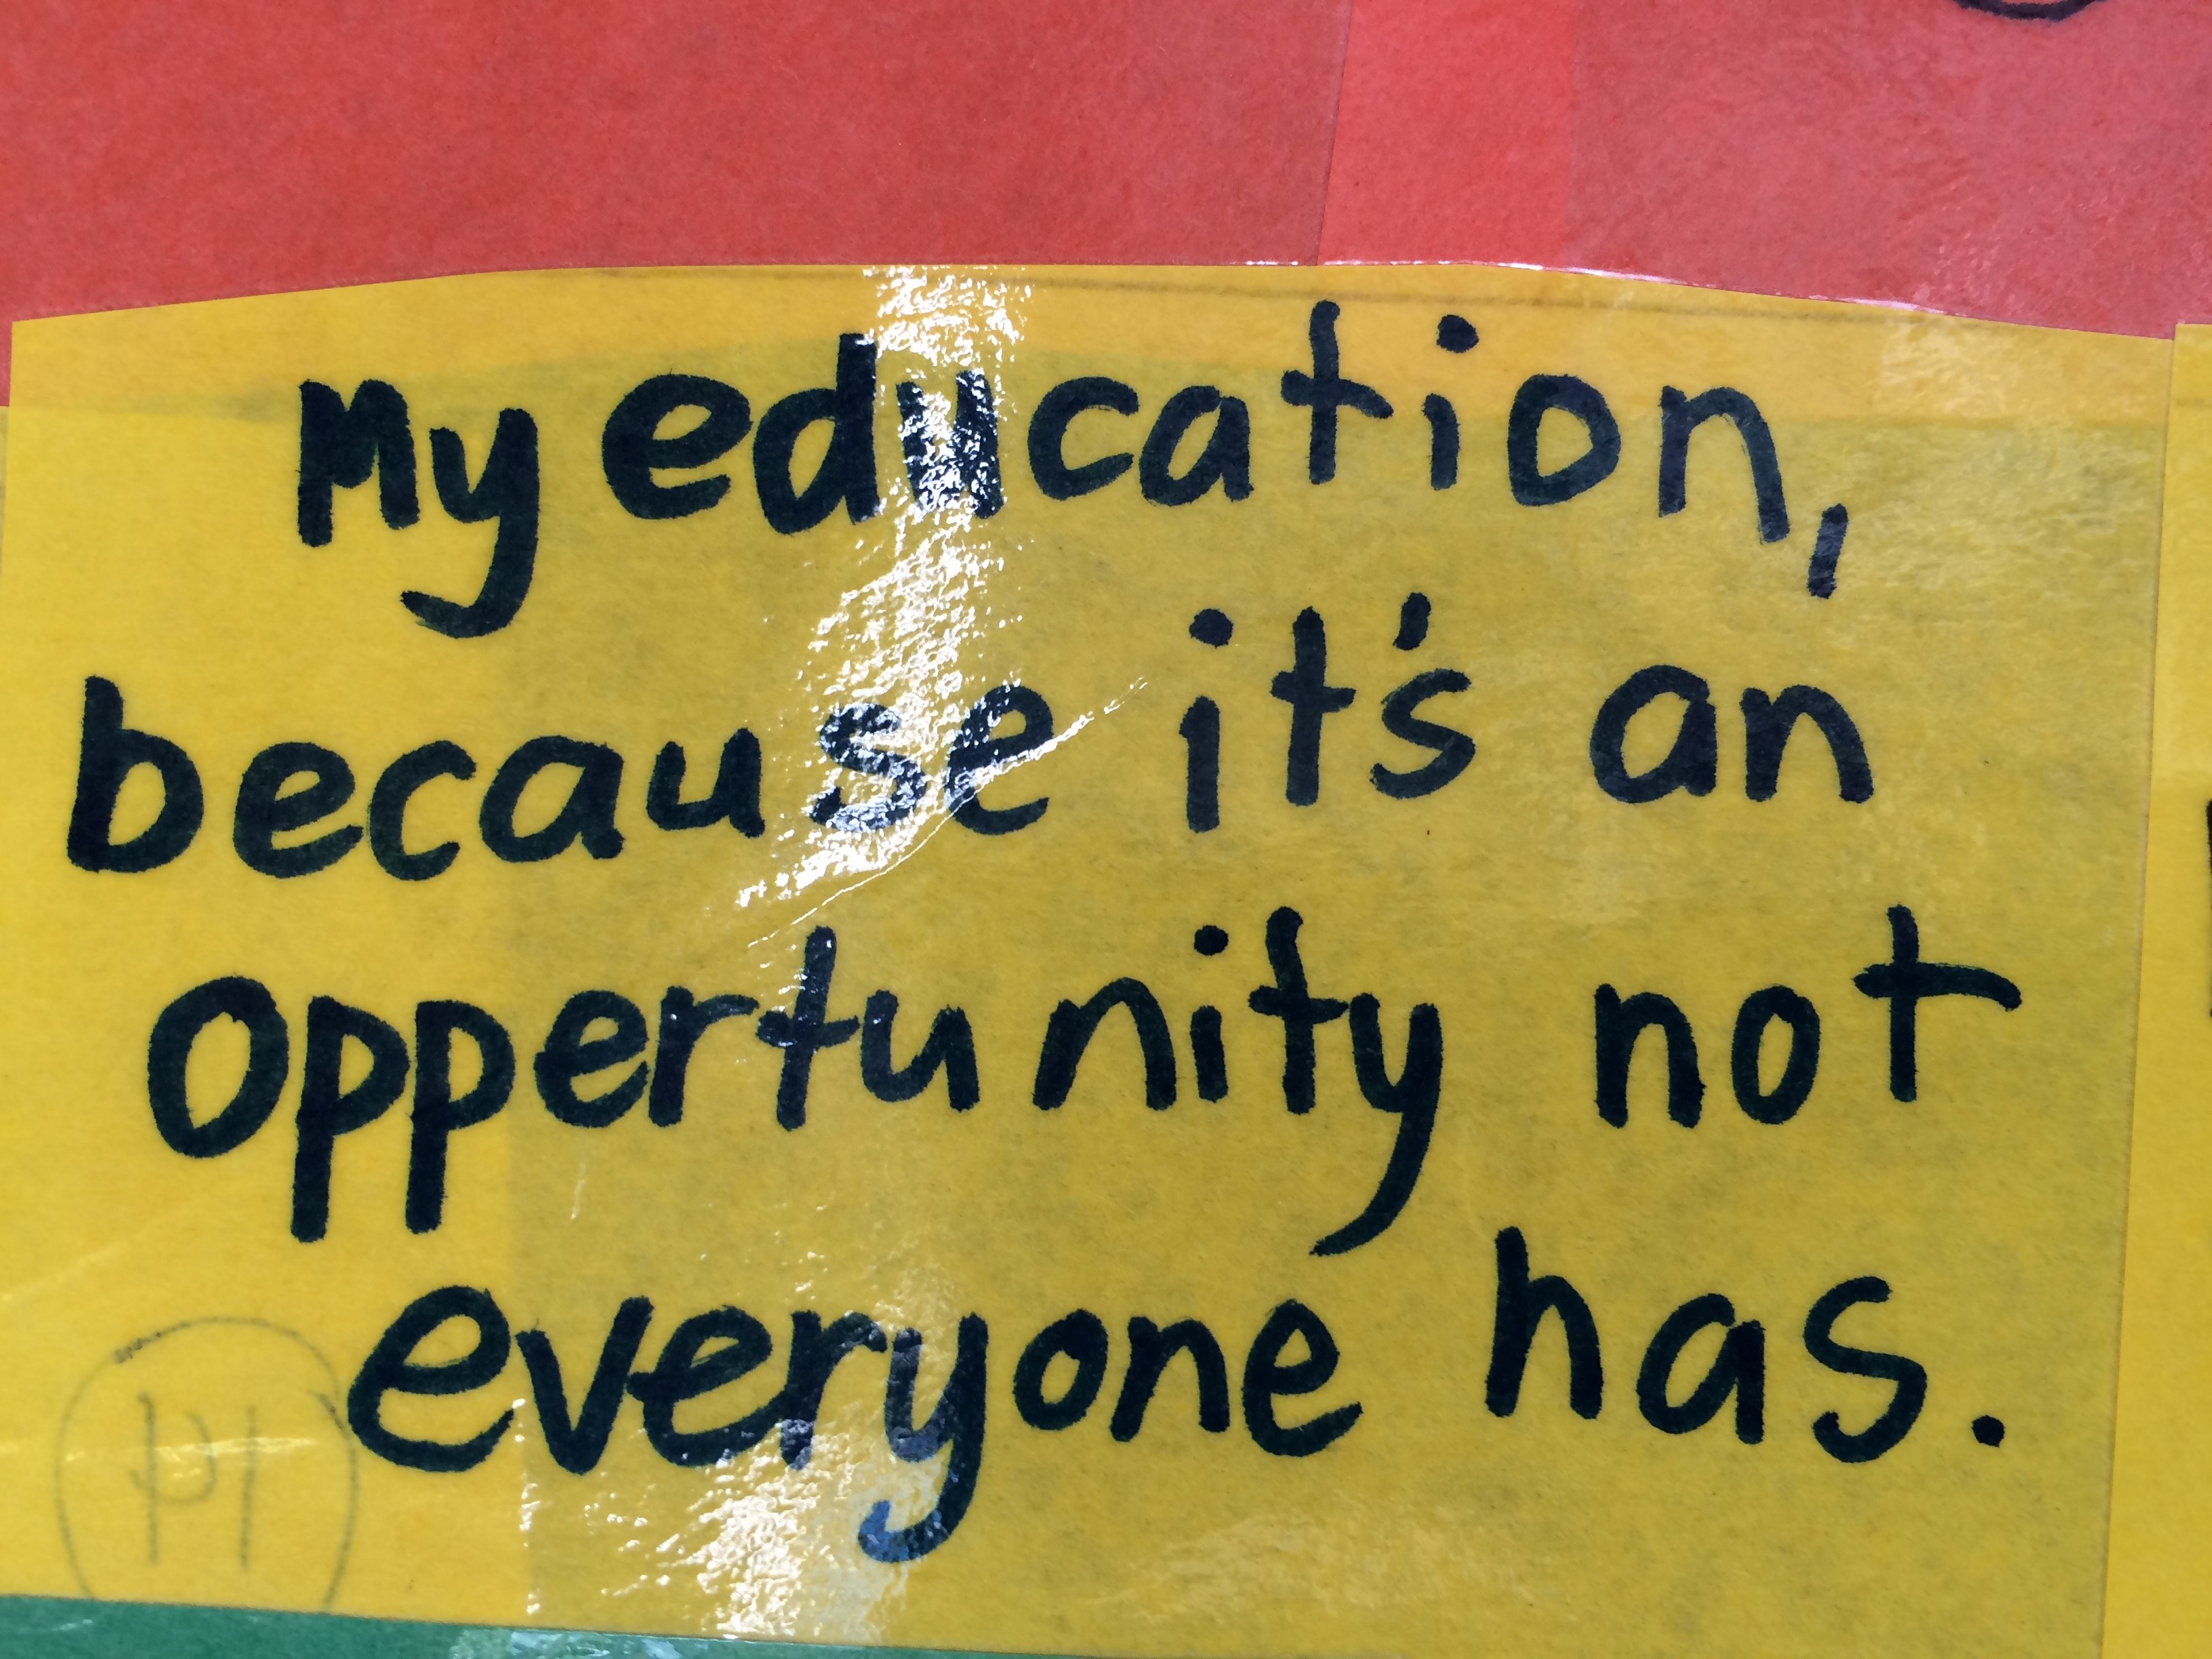 My education,
because it's an
oppertunity not
everyone has.
P1